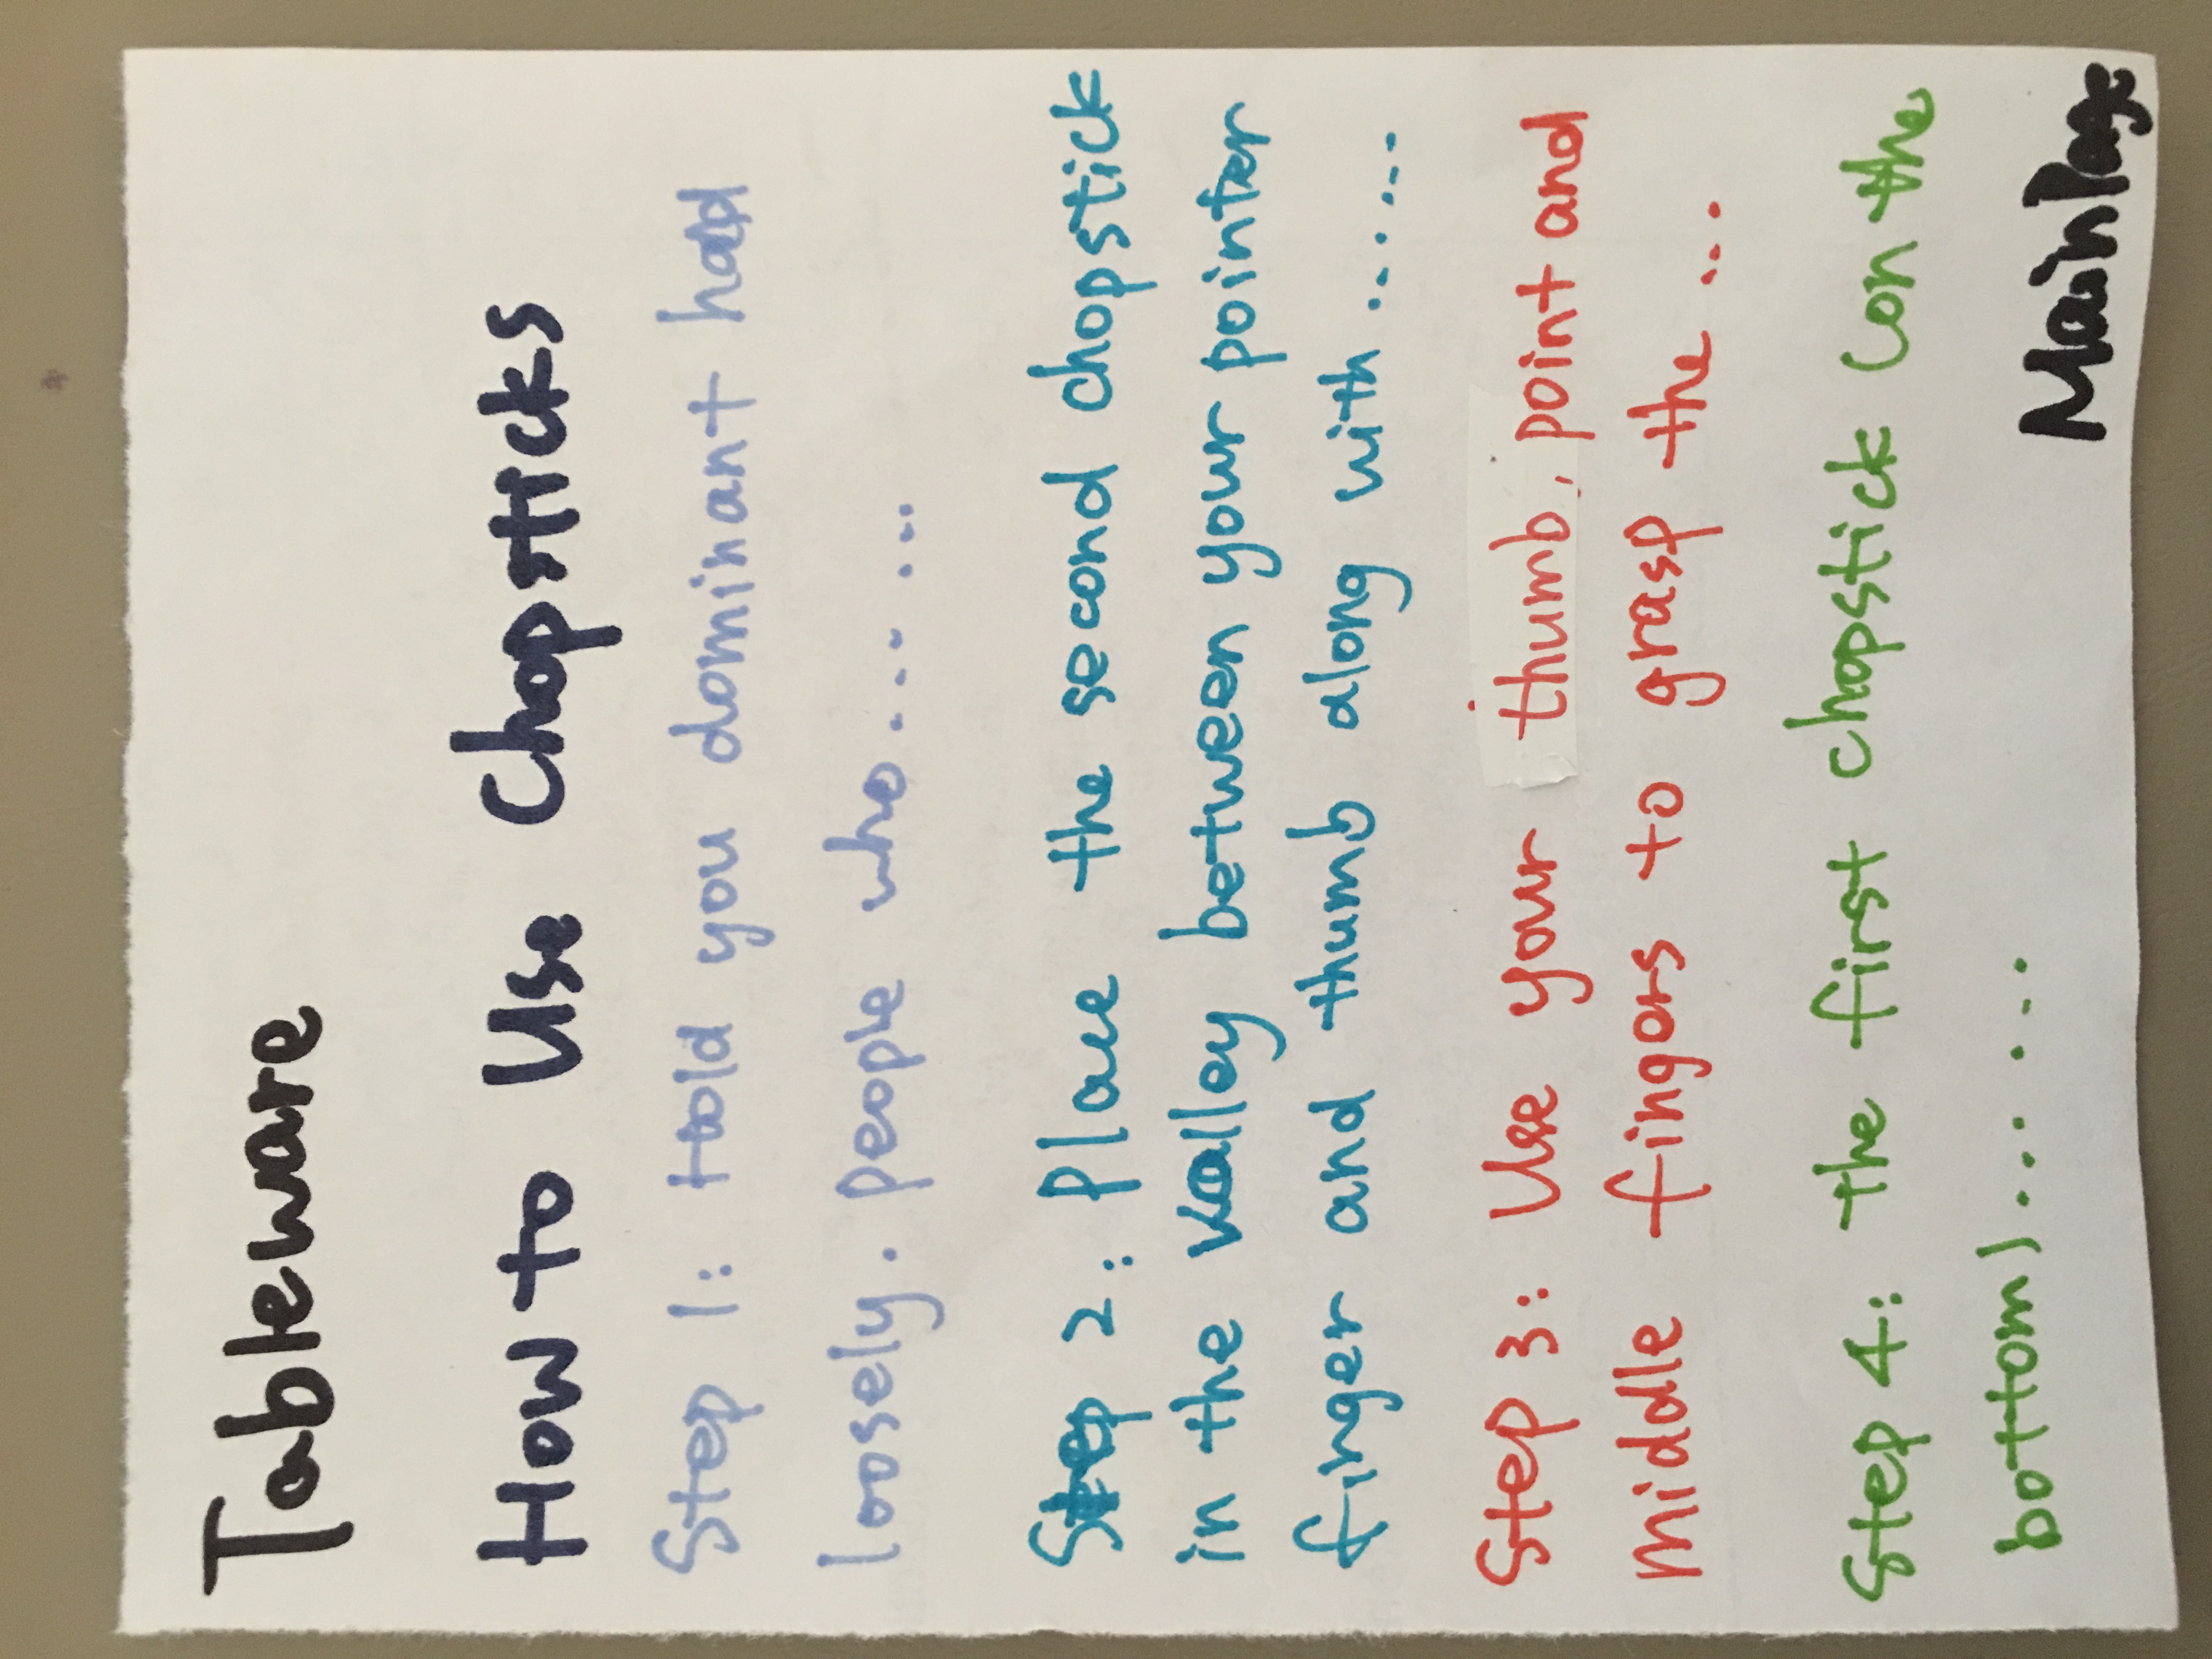 Tableware
How to Use Chopsticks
Step 1: told you dominant had
loosely. people who... ...
Step 2: Place the second chopstick
in the valley between your pointer
finger and thumb along with ... ...
Step 3: Use your thumb, point and
middle fingors to grasp the ...
Step 4: the first chopstick (on the
bottom) ... ...
Main Page